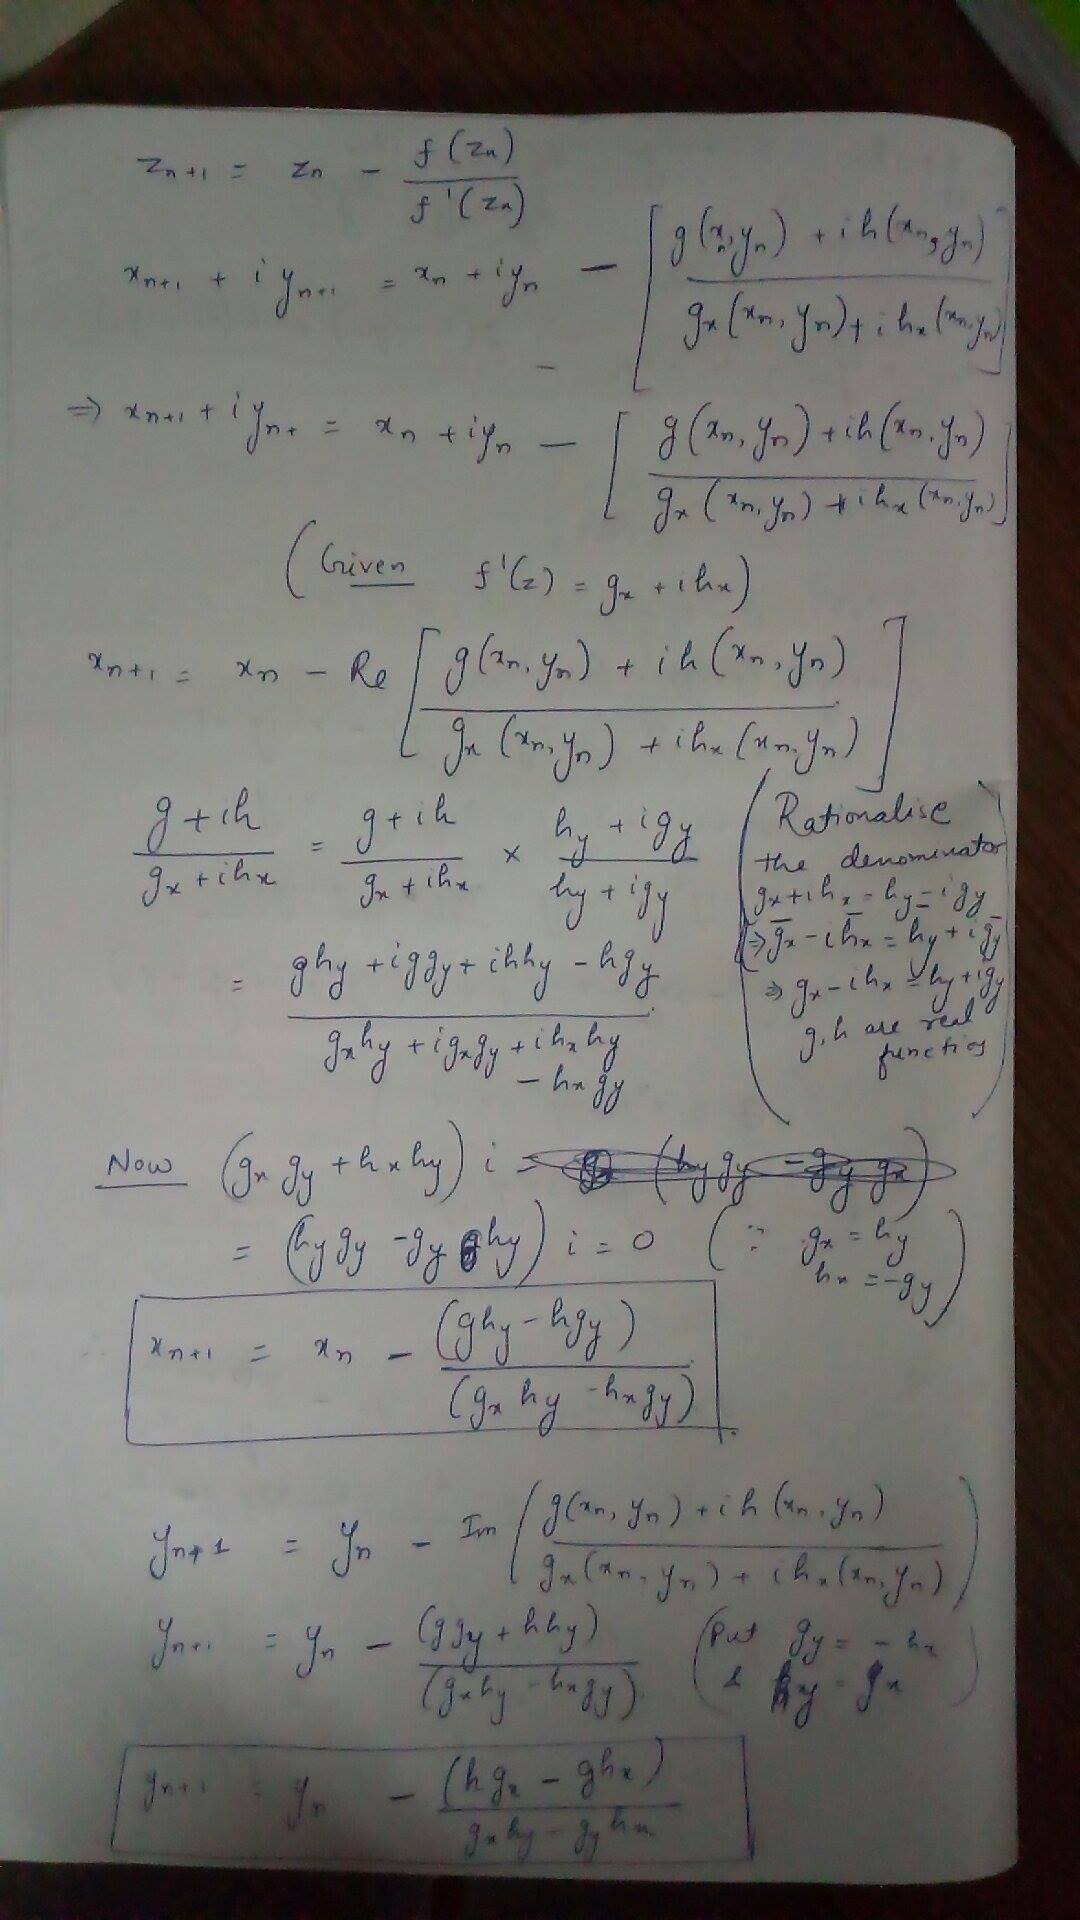 z_{n+1} = z_n - f(z_n) / f'(z_n)
x_{n+1} + i y_{n+1} = x_n + i y_n - [ (g(x_n, y_n) + i h(x_n, y_n)) / (g_x(x_n, y_n) + i h_x(x_n, y_n)) ]
⇒ x_{n+1} + i y_{n+} = x_n + i y_n - [ (g(x_n, y_n) + i h(x_n, y_n)) / (g_x(x_n, y_n) + i h_x(x_n, y_n)) ]
(Given f'(z) = g_x + i h_x)
x_{n+1} = x_n - Re [ (g(x_n, y_n) + i h(x_n, y_n)) / (g_x(x_n, y_n) + i h_x(x_n, y_n)) ]
(g + ih) / (g_x + i h_x) = (g + ih) / (g_x + i h_x) × (h_y + i g_y) / (h_y + i g_y)
= (g h_y + i g g_y + i h h_y - h g_y) / (g_x h_y + i g_x g_y + i h_x h_y - h_x g_y)
(Rationalise
the denominator
g_x + i h_x = h_y - i g_y
⇒ \bar{g_x} - i \bar{h_x} = h_y + i \bar{g_y}
⇒ g_x - i h_x = h_y + i g_y
g, h are real
functios)
Now (g_x g_y + h_x h_y) i =
= (h_y g_y - g_y h_y) i = 0 (∵ g_x = h_y
h_x = -g_y)
x_{n+1} = x_n - (g h_y - h g_y) / (g_x h_y - h_x g_y)
y_{n+1} = y_n - Im ( (g(x_n, y_n) + i h(x_n, y_n)) / (g_x(x_n, y_n) + i h_x(x_n, y_n)) )
y_{n+1} = y_n - (g g_y + h h_y) / (g_x h_y - h_x g_y) (Put g_y = - h_x
& h_y = g_x)
y_{n+1} = y_n - (h g_x - g h_x) / (g_x h_y - g_y h_x)